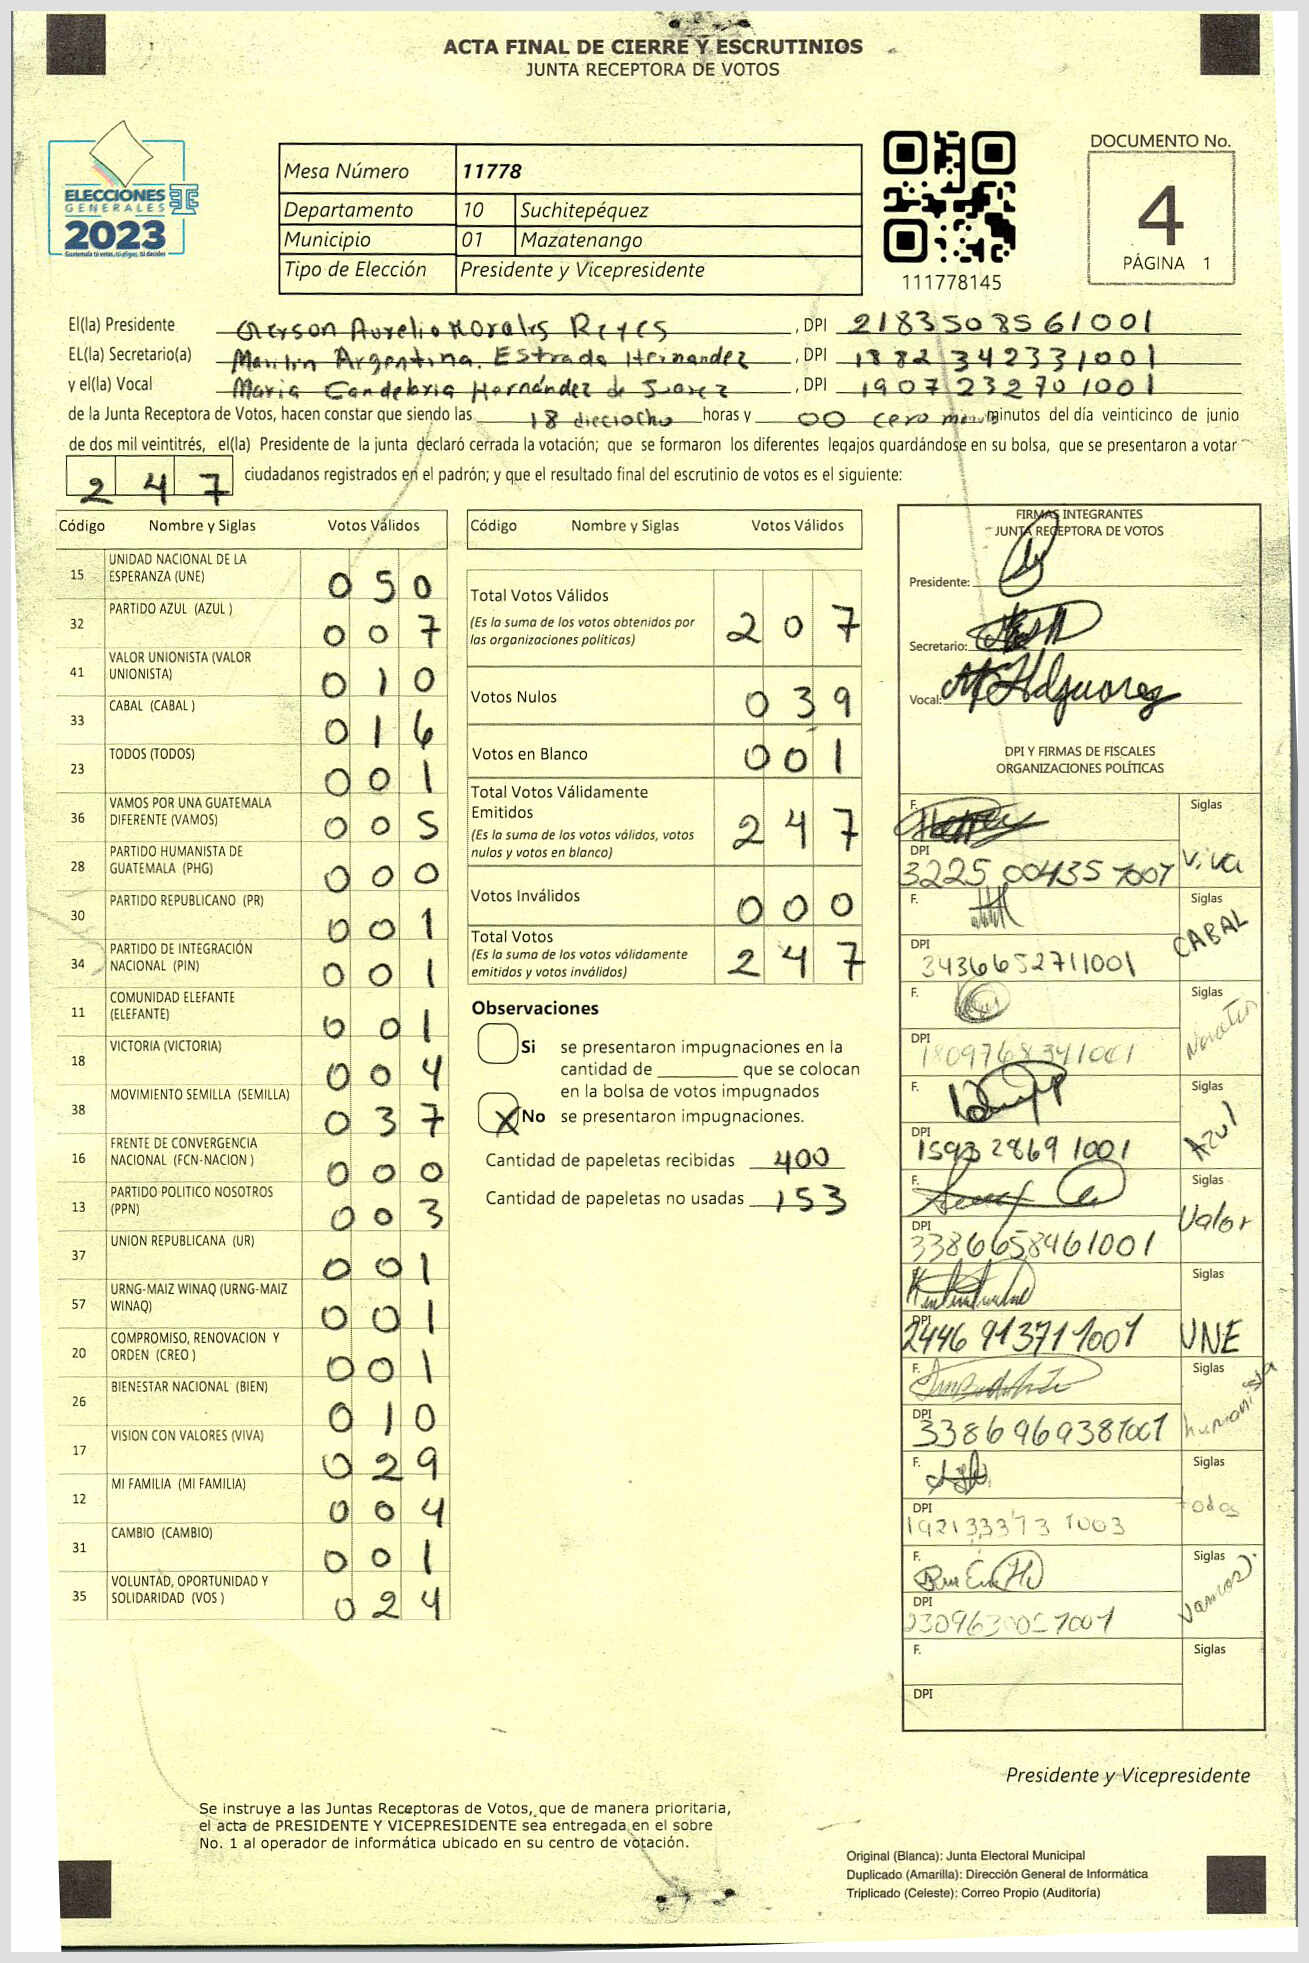 ACTA FINAL DE CIERRE Y ESCRUTINIOS
JUNTA RECEPTORA DE VOTOS
ELECCIONES
GENERALES
2023
Guatemala tú votas, tú eliges, tú decides
Mesa Número 11778
Departamento 10 Suchitepéquez
Municipio 01 Mazatenango
Tipo de Elección Presidente y Vicepresidente
111778145
DOCUMENTO No.
4
PÁGINA 1
El(la) Presidente Gerson Aurelio Morales Reyes, DPI 2183508561001
EL(la) Secretario(a) Marilin Argentina Estrada Hernandez, DPI 1882342331001
y el(la) Vocal Maria Candelaria Hernández de Suarez, DPI 1907232701001
de la Junta Receptora de Votos, hacen constar que siendo las 18 dieciocho horas y 00 cero minutos del día veinticinco de junio
de dos mil veintitrés, el(la) Presidente de la junta declaró cerrada la votación; que se formaron los diferentes legajos quardándose en su bolsa, que se presentaron a votar
247 ciudadanos registrados en el padrón; y que el resultado final del escrutinio de votos es el siguiente:
Código Nombre y Siglas Votos Válidos
15 UNIDAD NACIONAL DE LA ESPERANZA (UNE) 050
32 PARTIDO AZUL (AZUL ) 007
41 VALOR UNIONISTA (VALOR UNIONISTA) 010
33 CABAL (CABAL ) 016
23 TODOS (TODOS) 001
36 VAMOS POR UNA GUATEMALA DIFERENTE (VAMOS) 005
28 PARTIDO HUMANISTA DE GUATEMALA (PHG) 000
30 PARTIDO REPUBLICANO (PR) 001
34 PARTIDO DE INTEGRACIÓN NACIONAL (PIN) 001
11 COMUNIDAD ELEFANTE (ELEFANTE) 001
18 VICTORIA (VICTORIA) 004
38 MOVIMIENTO SEMILLA (SEMILLA) 037
16 FRENTE DE CONVERGENCIA NACIONAL (FCN-NACION ) 000
13 PARTIDO POLITICO NOSOTROS (PPN) 003
37 UNION REPUBLICANA (UR) 001
57 URNG-MAIZ WINAQ (URNG-MAIZ WINAQ) 001
20 COMPROMISO, RENOVACION Y ORDEN (CREO ) 001
26 BIENESTAR NACIONAL (BIEN) 010
17 VISION CON VALORES (VIVA) 029
12 MI FAMILIA (MI FAMILIA) 004
31 CAMBIO (CAMBIO) 001
35 VOLUNTAD, OPORTUNIDAD Y SOLIDARIDAD (VOS ) 024
Código Nombre y Siglas Votos Válidos
Total Votos Válidos 207
(Es la suma de los votos obtenidos por
las organizaciones políticas)
Votos Nulos 039
Votos en Blanco 001
Total Votos Válidamente
Emitidos 247
(Es la suma de los votos válidos, votos
nulos y votos en blanco)
Votos Inválidos 000
Total Votos 247
(Es la suma de los votos válidamente
emitidos y votos inválidos)
Observaciones
Si se presentaron impugnaciones en la
cantidad de ________ que se colocan
en la bolsa de votos impugnados
X No se presentaron impugnaciones.
Cantidad de papeletas recibidas 400
Cantidad de papeletas no usadas 153
FIRMAS INTEGRANTES
JUNTA RECEPTORA DE VOTOS
Presidente:
Secretario:
Vocal:
DPI Y FIRMAS DE FISCALES
ORGANIZACIONES POLÍTICAS
F. Siglas
DPI 3225 00435 1001 Viva
F. Siglas
DPI 3436652711001 CABAL
F. Siglas
DPI 1809768341001
F. Siglas
DPI 159328691001 Azul
F. Siglas
DPI 3386658461001 Valor
Siglas
DPI 2446 91371 1001 UNE
F. Siglas
DPI 3386969381001 humanista
F. Siglas
DPI 192133373 1003 todos
F. Siglas
DPI Vamos
F. Siglas
DPI
Presidente y Vicepresidente
Se instruye a las Juntas Receptoras de Votos, que de manera prioritaria,
el acta de PRESIDENTE Y VICEPRESIDENTE sea entregada en el sobre
No. 1 al operador de informática ubicado en su centro de votación.
Original (Blanca): Junta Electoral Municipal
Duplicado (Amarilla): Dirección General de Informática
Triplicado (Celeste): Correo Propio (Auditoría)